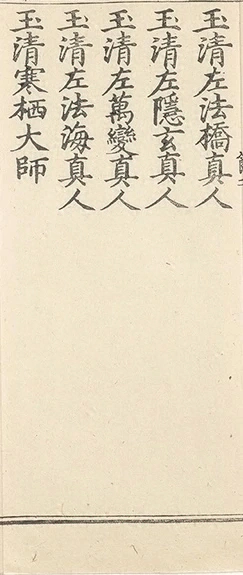 玉清左法橋真人
玉清左隱玄真人
玉清左萬變真人
玉清左法海真人
玉清寒栖大師